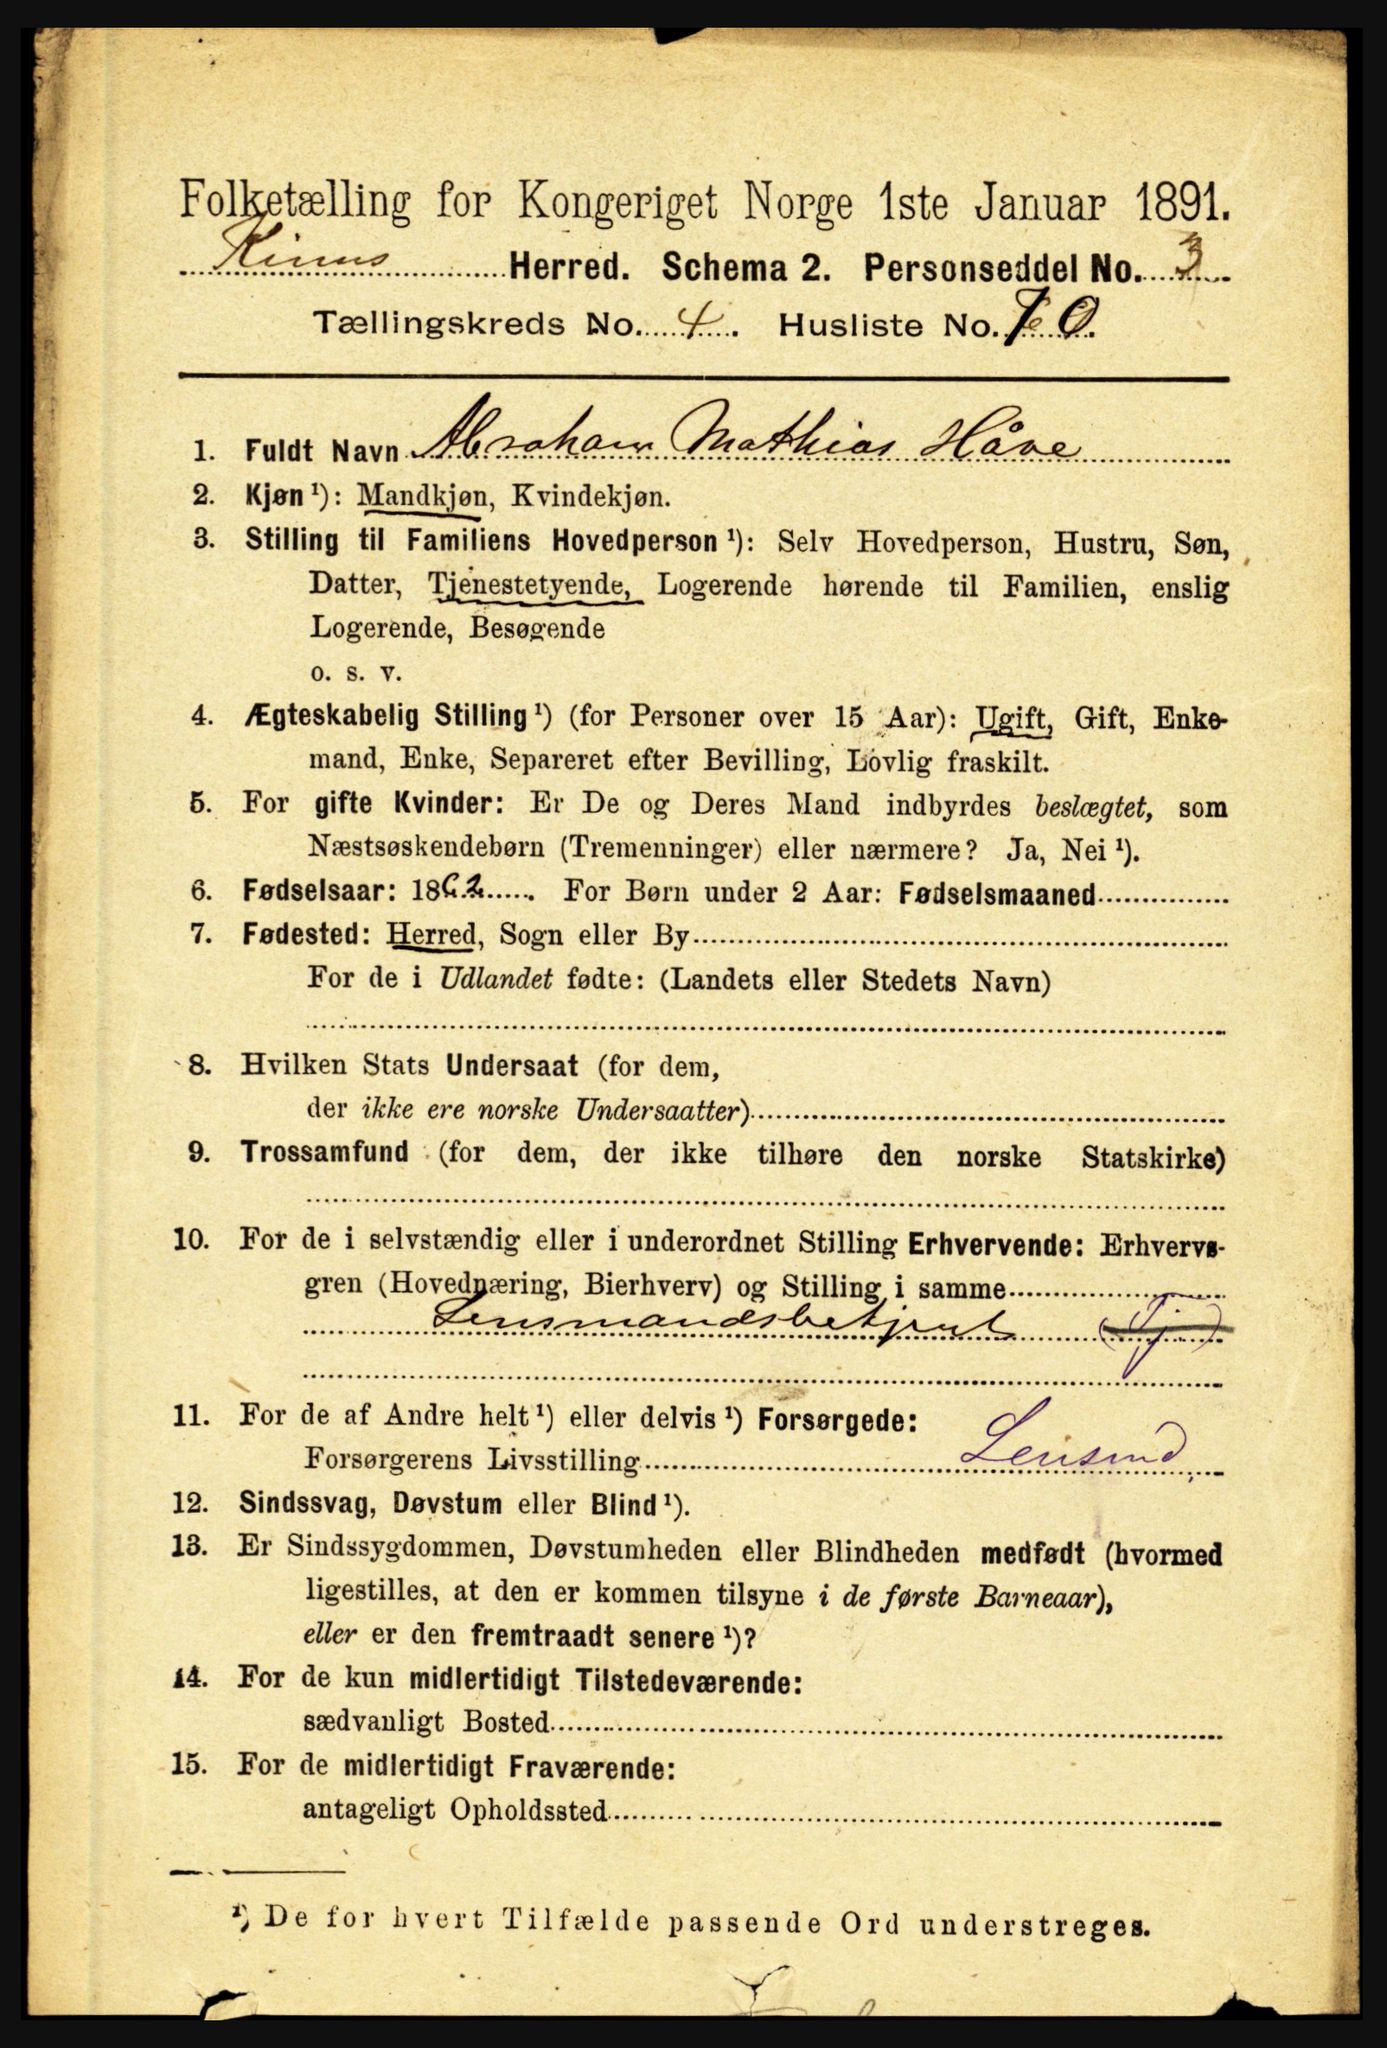 Folketælling for Kongeriget Norge 1ste Januar 1891.
Kinns Herred. Schema 2. Personseddel No. 3.
Tællingskreds No. 4. Husliste No. 70.
1. Fuldt Navn Abraham Mathias Håve
2. Kjøn ¹): Mandkjøn, Kvindekjøn.
3. Stilling til Familiens Hovedperson ¹): Selv Hovedperson, Hustru, Søn,
Datter, Tjenestetyende, Logerende hørende til Familien, enslig
Logerende, Besøgende
o. s. v.
4. Ægteskabelig Stilling ¹) (for Personer over 15 Aar): Ugift, Gift, Enke-
mand, Enke, Separeret efter Bevilling, Lovlig fraskilt.
5. For gifte Kvinder: Er De og Deres Mand indbyrdes beslægtet, som
Næstsøskendebørn (Tremenninger) eller nærmere? Ja, Nei ¹).
6. Fødselsaar: 1862. For Børn under 2 Aar: Fødselsmaaned
7. Fødested: Herred, Sogn eller By
For de i Udlandet fødte: (Landets eller Stedets Navn)
8. Hvilken Stats Undersaat (for dem,
der ikke ere norske Undersaatter)
9. Trossamfund (for dem, der ikke tilhøre den norske Statskirke)
10. For de i selvstændig eller i underordnet Stilling Erhvervende: Erhvervs-
gren (Hovednæring, Bierhverv) og Stilling i samme
Lensmandsbetjent (Tj)
11. For de af Andre helt ¹) eller delvis ¹) Forsørgede:
Forsørgerens Livsstilling Lensmd,
12. Sindssvag, Døvstum eller Blind ¹).
13. Er Sindssygdommen, Døvstumheden eller Blindheden medfødt (hvormed
ligestilles, at den er kommen tilsyne i de første Barneaar),
eller er den fremtraadt senere ¹)?
14. For de kun midlertidigt Tilstedeværende:
sædvanligt Bosted
15. For de midlertidigt Fraværende:
antageligt Opholdssted
¹) De for hvert Tilfælde passende Ord understreges.